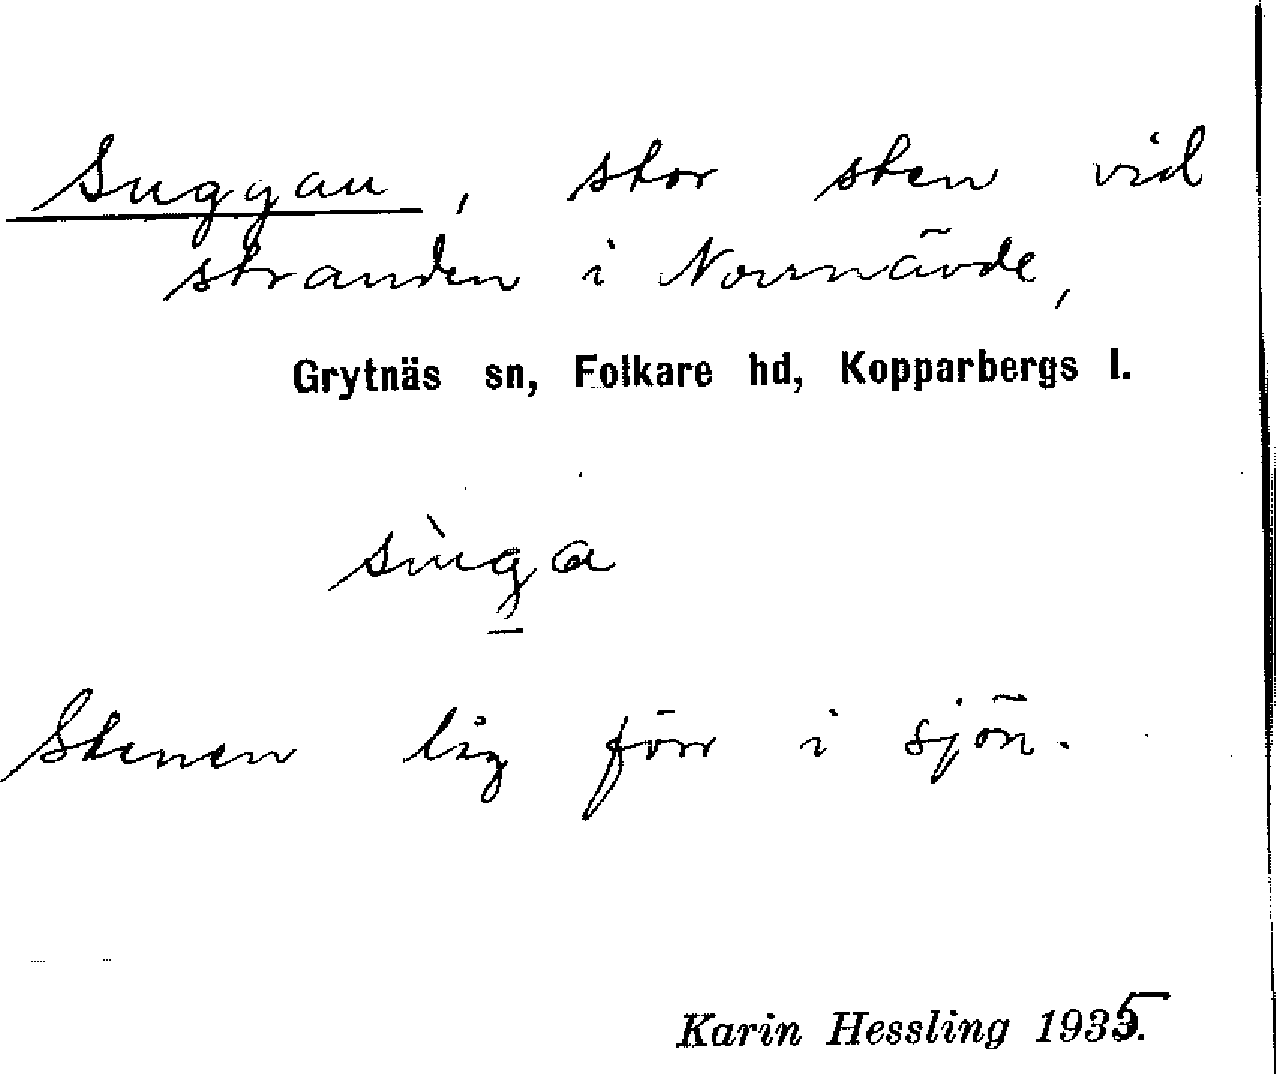 Suggan, stor sten vid
stranden i Norrnävde,
Grytnäs sn, Folkare hd, Kopparbergs l.
sùga
Stenen låg förr i sjön.
Karin Hessling 1935.